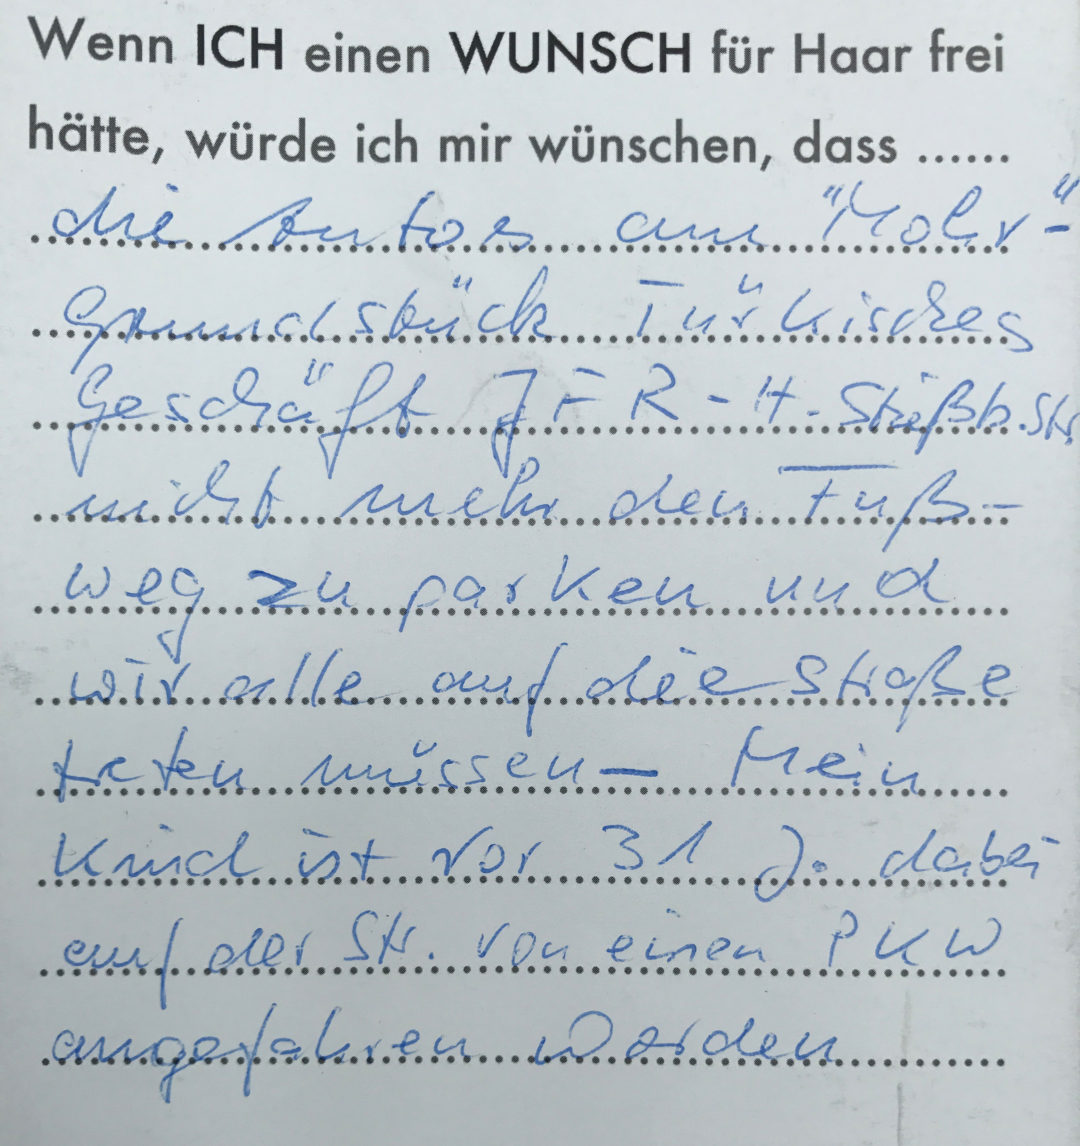 Wenn ICH einen WUNSCH für Haar frei
hätte, würde ich mir wünschen, dass ......
die Autos am "Mohr"-
Grundstück Türkisches
Geschäft JFR-H.-Stießb.Str.
nicht mehr den Fuß-
weg zu parken und
wir alle auf die Straße
treten müssen – Mein
Kind ist vor 31 J. dabei
auf der Str. von einen PKW
angefahren worden